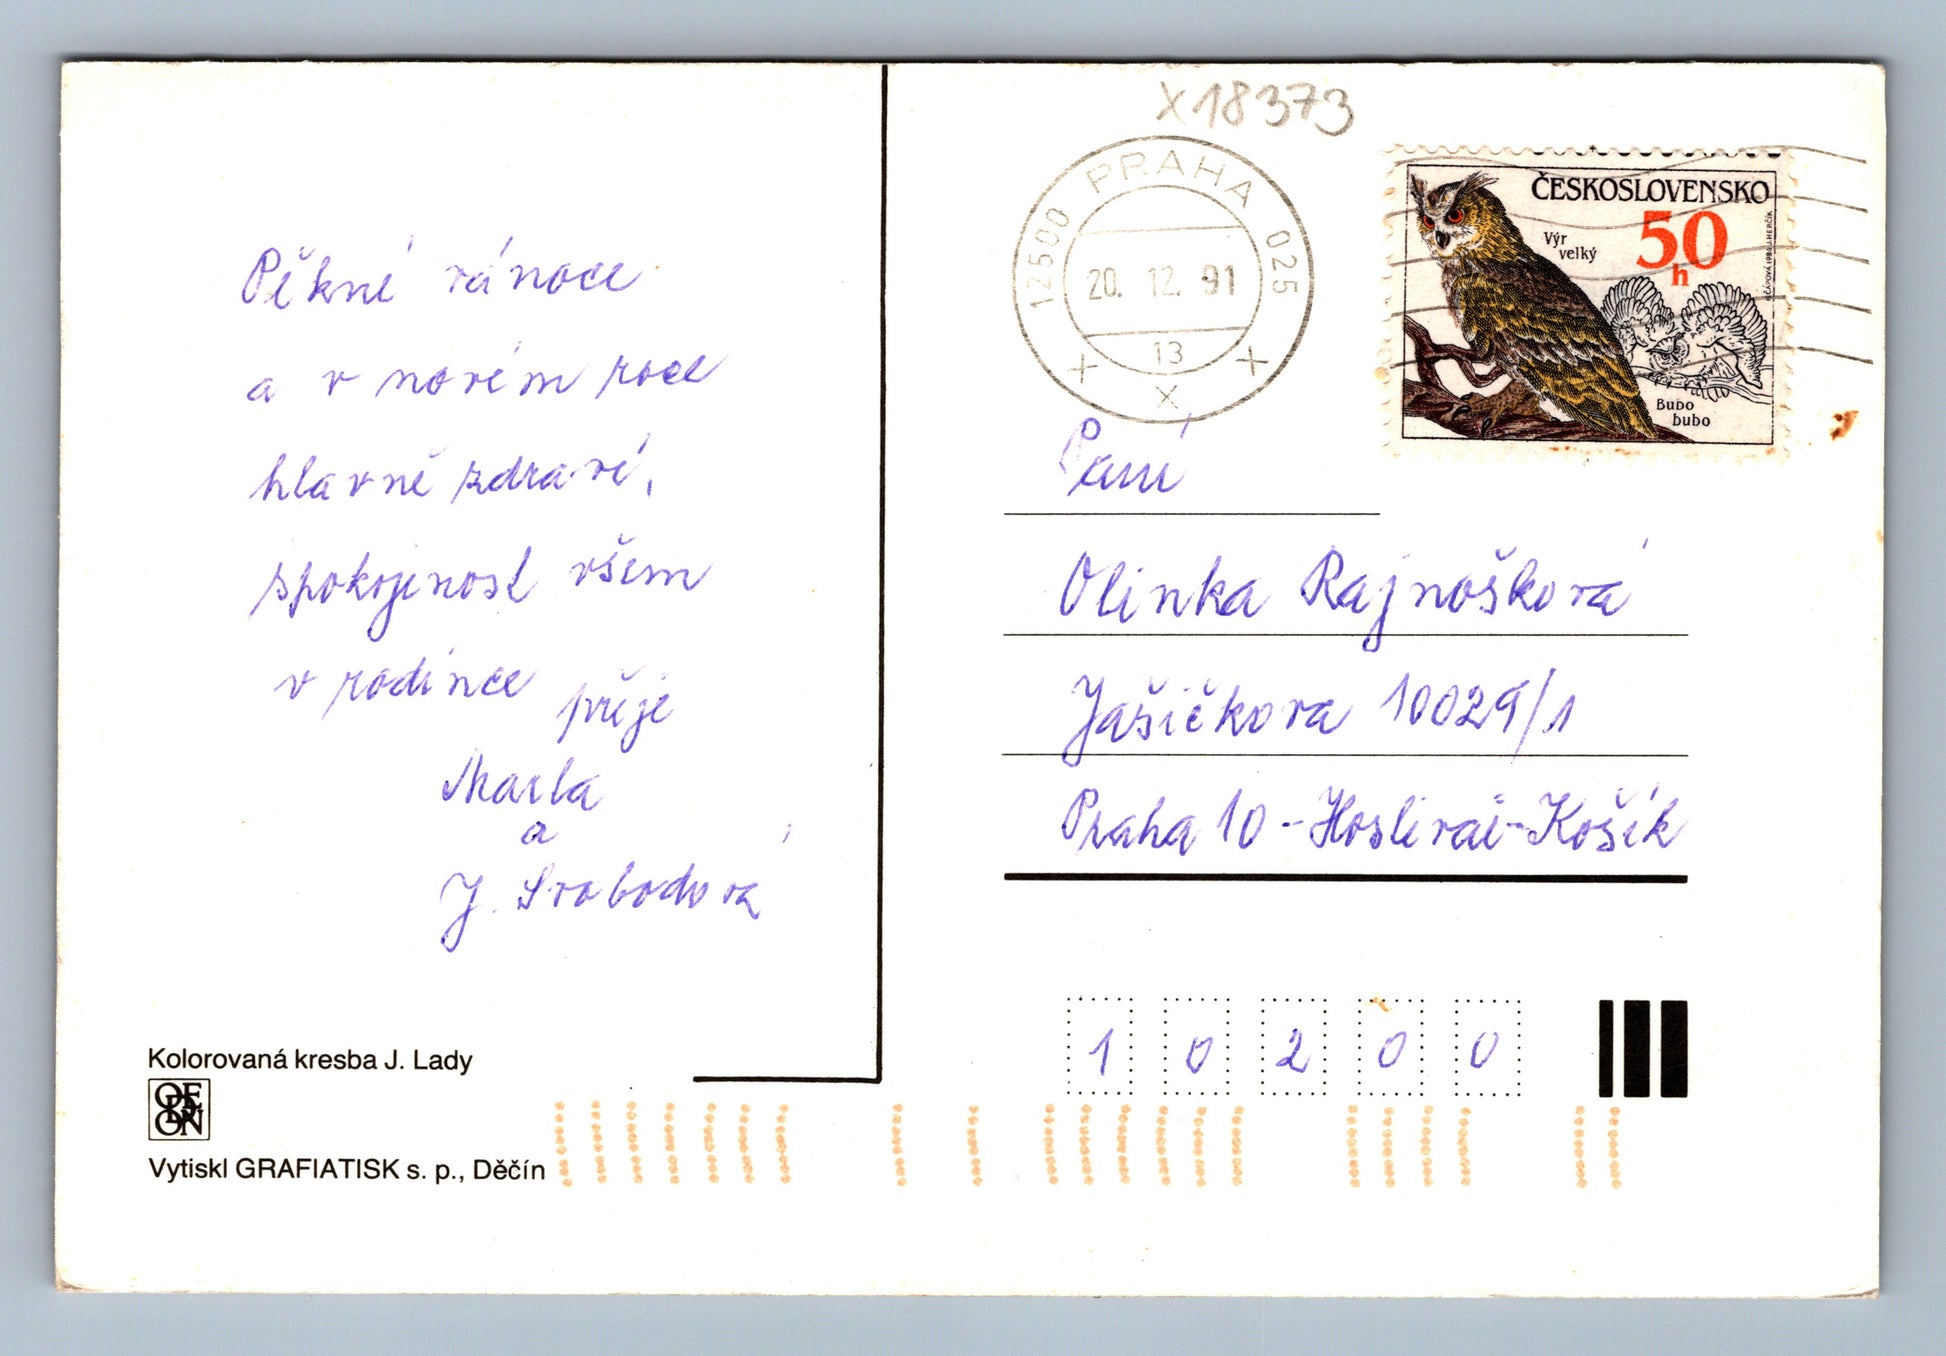 Pěkné vánoce
a v novém roce
hlavně zdraví,
spokojenost všem
v rodince přeje
Marta
a
J. Svobodová
Kolorovaná kresba J. Lady
ODEON
Vytiskl GRAFIATISK s. p., Děčín
X18373
12500 PRAHA 025
20. 12. 91
13
ČESKOSLOVENSKO
50
h
Výr
velký
Bubo
bubo
Paní
Olinka Rajnošková
Jašíčkova 10029/1
Praha 10 - Hostivař - Košík
1 0 2 0 0